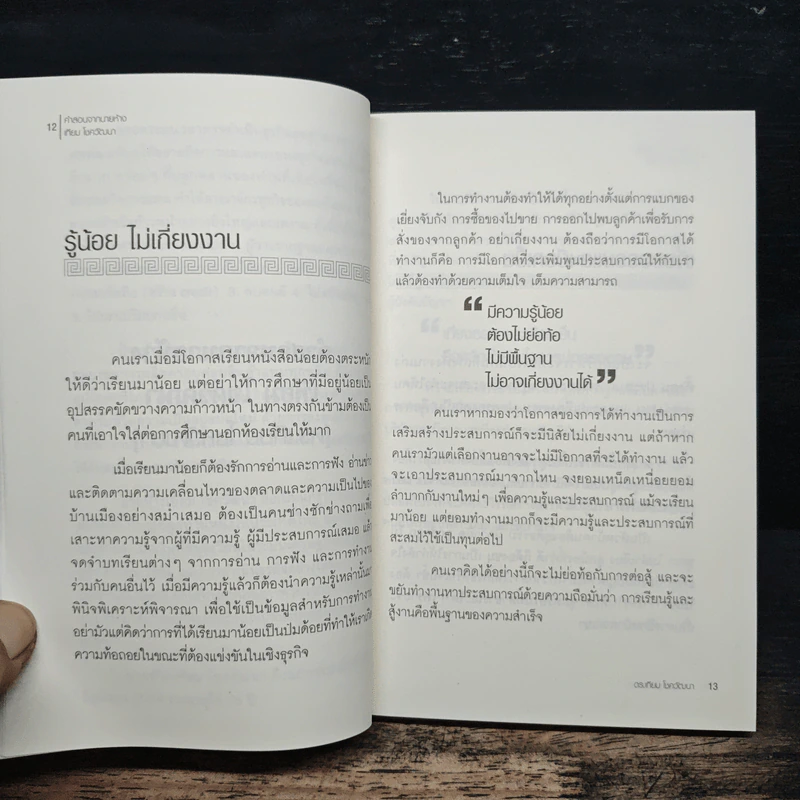 12
คำสอนจากนายห้าง
เทียม โชควัฒนา
รู้น้อย ไม่เกี่ยงงาน
คนเราเมื่อมีโอกาสเรียนหนังสือน้อยต้องตระหนัก
ให้ดีว่าเรียนมาน้อย แต่อย่าให้การศึกษาที่มีอยู่น้อยเป็น
อุปสรรคขัดขวางความก้าวหน้า ในทางตรงกันข้ามต้องเป็น
คนที่เอาใจใส่ต่อการศึกษานอกห้องเรียนให้มาก
เมื่อเรียนมาน้อยก็ต้องรักการอ่านและการฟัง อ่านข่าว
และติดตามความเคลื่อนไหวของตลาดและความเป็นไปของ
บ้านเมืองอย่างสม่ำเสมอ ต้องเป็นคนช่างซักช่างถามเพื่อ
เสาะหาความรู้จากผู้ที่มีความรู้ ผู้มีประสบการณ์เสมอ แล้ว
จดจำบทเรียนต่างๆ จากการอ่าน การฟัง และการทำงาน
ร่วมกับคนอื่นไว้ เมื่อมีความรู้แล้วก็ต้องนำความรู้เหล่านั้นมา
พินิจพิเคราะห์พิจารณา เพื่อใช้เป็นข้อมูลสำหรับการทำงาน
อย่ามัวแต่คิดว่าการที่ได้เรียนมาน้อยเป็นปมด้อยที่ทำให้เราเกิด
ความท้อถอยในขณะที่ต้องแข่งขันในเชิงธุรกิจ
ในการทำงานต้องทำให้ได้ทุกอย่างตั้งแต่การแบกของ
เยี่ยงจับกัง การซื้อของไปขาย การออกไปพบลูกค้าเพื่อรับการ
สั่งของจากลูกค้า อย่าเกี่ยงงาน ต้องถือว่าการมีโอกาสได้
ทำงานก็คือ การมีโอกาสที่จะเพิ่มพูนประสบการณ์ให้กับเรา
แล้วต้องทำด้วยความเต็มใจ เต็มความสามารถ
“มีความรู้น้อย
ต้องไม่ย่อท้อ
ไม่มีพื้นฐาน
ไม่อาจเกี่ยงงานได้”
คนเราหากมองว่าโอกาสของการได้ทำงานเป็นการ
เสริมสร้างประสบการณ์ก็จะมีนิสัยไม่เกี่ยงงาน แต่ถ้าหาก
คนเรามัวแต่เลือกงานอาจจะไม่มีโอกาสที่จะได้ทำงาน แล้ว
จะเอาประสบการณ์มาจากไหน จงยอมเหน็ดเหนื่อยยอม
ลำบากกับงานใหม่ๆ เพื่อความรู้และประสบการณ์ แม้จะเรียน
มาน้อย แต่ยอมทำงานมากก็จะมีความรู้และประสบการณ์ที่
สะสมไว้ใช้เป็นทุนต่อไป
คนเราคิดได้อย่างนี้ก็จะไม่ย่อท้อกับการต่อสู้ และจะ
ขยันทำงานหาประสบการณ์ด้วยความถือมั่นว่า การเรียนรู้และ
สู้งานคือพื้นฐานของความสำเร็จ
ดร.เทียม โชควัฒนา 13